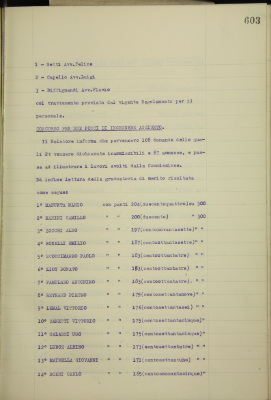 603
1 - Setti Avv.Felice
2 - Cupello Avv.Luigi
3 - Avv.Flavio
del trattamento previsto dal vigente Regolamento per il
personale.
CONCORSO PER DUE POSTI DI INGEGNERE AGGIUNTO.
Il Relatore informa che pervennero 108 domande delle qua-
li 21 vennero dichiarate inammissibili e 87 ammesse, e pas-
sa ad illustrare i lavori svolti dalla Commissione.
Dà infine lettura della graduatoria di merito risultata
come segue:
1° MARIO con punti 204(duecentoquattro)su 300
2° CAMILLO " " 200(duecento) " 300
3° ALDO " " 197(centonovantasette)" "
4° EMILIO " " 187(centottantasette)" "
5° PAOLO " " 183(centottantatre) " "
6° DONATO " " 183(centottantatre) " "
7° ANTONINO " " 183(centottantatre). " "
8° PIETRO " " 179(centosettantanove)" "
9° VITTORIO " " 176(centosettantasei) " "
10° VITTORIO " " 175(centosettantacinque)"
11° UGO " " 175(centosettantacinque)"
12° ALBINO " " 173(centosettantatre) " "
13° GIOVANNI " " 171(centosettantuno) " "
14° CARLO " " 165(centosessantacinque)"